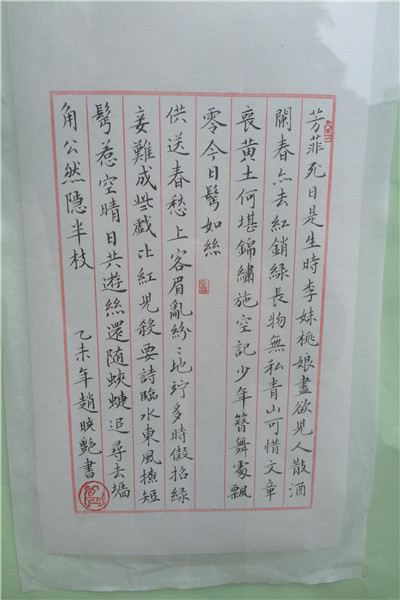 芳菲死日是生時李妹桃娘盡欲兒人散酒
闌春亦去紅銷綠長物無私青山可惜文章
喪黃土何堪錦繡施空記少年簪舞處飄
零今日鬢如絲
供送春愁上客眉亂紛〻地竚多時儗招綠
妾難成些戲比紅兒殺要詩臨水東風撩短
鬢惹空晴日共遊絲還隨蛺蝶追尋去墻
角公然隱半枝 乙未年趙映艷書